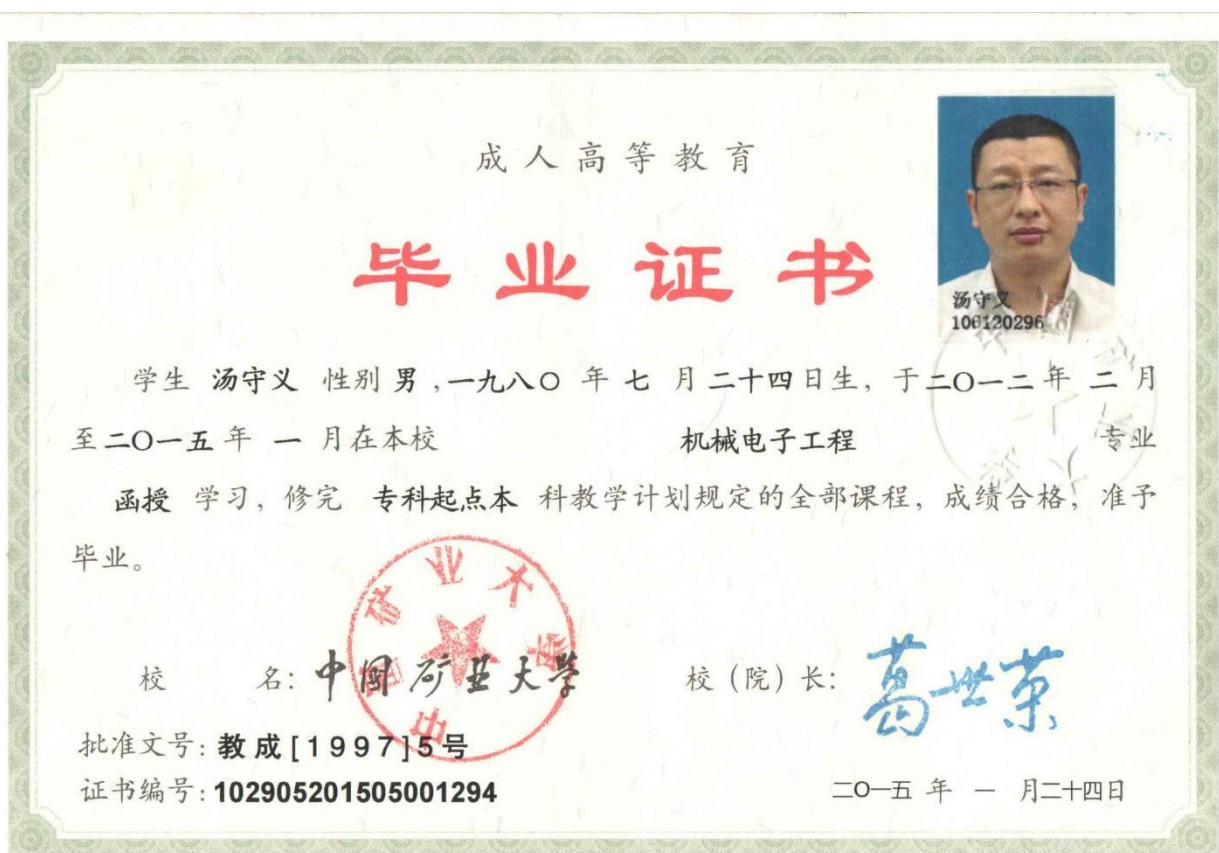 成人高等教育
毕业证书
汤守义
106120296
学生 汤守义 性别 男 ,一九八〇 年 七 月 二十四日生, 于二〇一二年 二 月
至二〇一五年 一 月在本校 机械电子工程 专业
函授 学习, 修完 专科起点本 科教学计划规定的全部课程, 成绩合格, 准予
毕业。
中国矿业大学
校 名: 中国矿业大学 校(院)长: 葛世荣
批准文号: 教成[1997]5号
证书编号: 102905201505001294 二〇一五 年 一 月二十四日